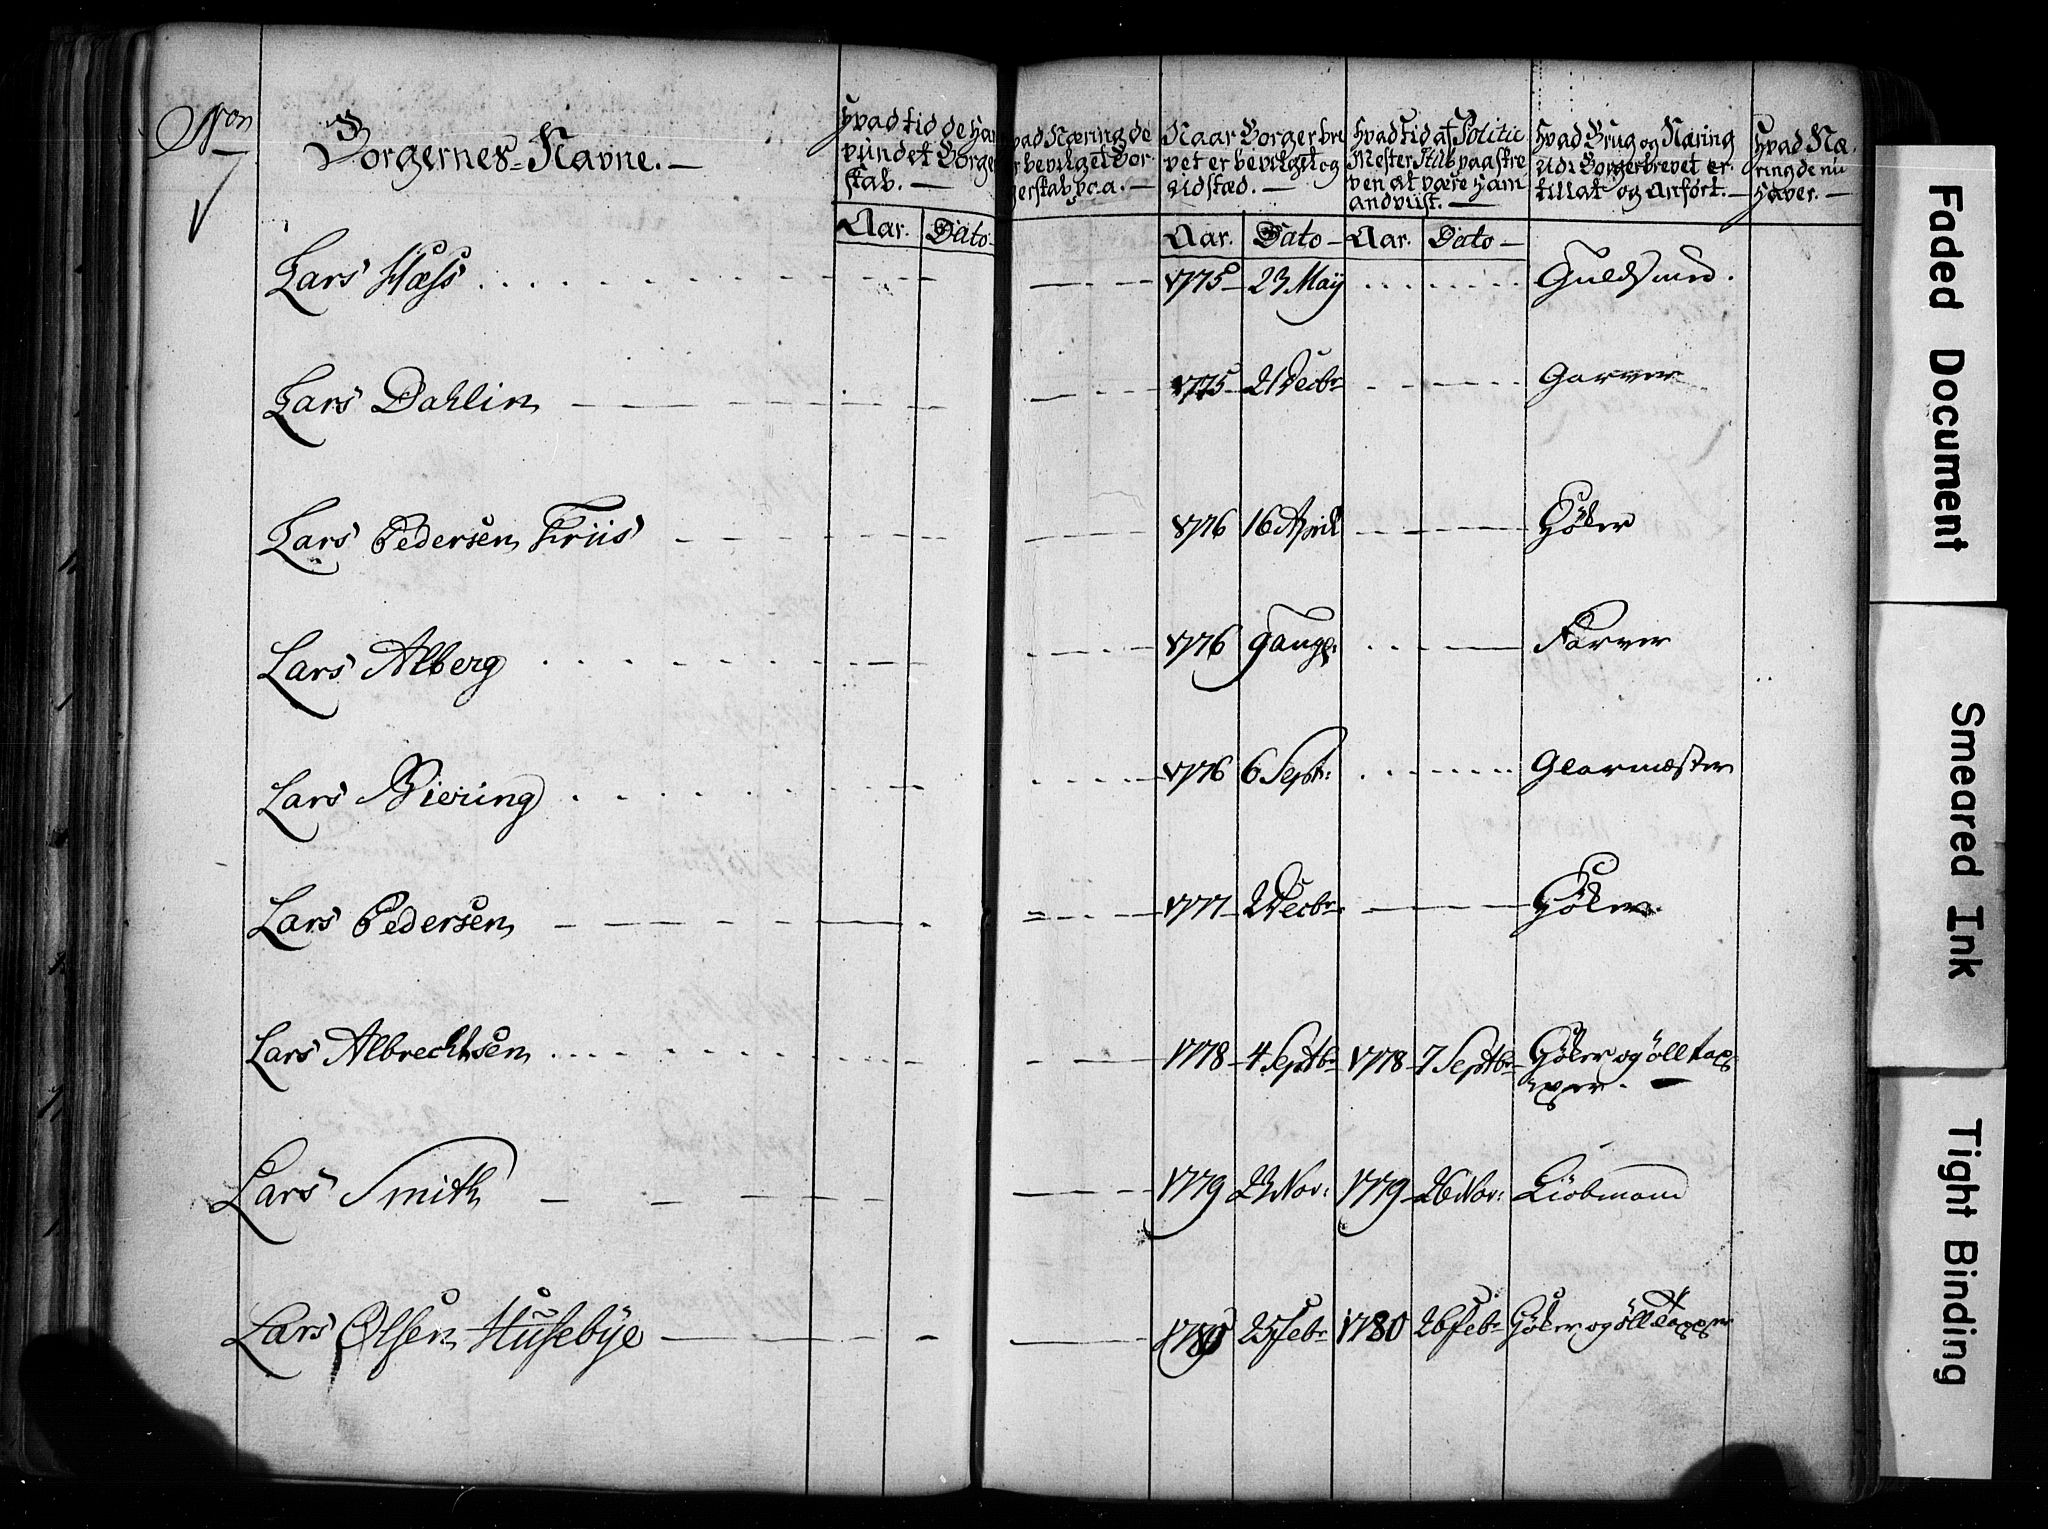 Non
Borgernes Navne. —
Hvad tid de Har
vundet Borger
skab. —
Hvad Næring de
er bevilget Bor-
gerskab paa. —
Naar Borgerbre
vet er bevilget og
udstæd. —
Hvad tid af Politie
Mester
ven at være Ham
andviist. —
Hvad Brug og Næring
Udi Borgerbrevet er
tillat og Anført. —
Hvad Næ-
ring de nu
Haver. —
Aar. Dato — Aar. Dato — Aar. Dato —
Lars Hæss 1775 23 Maij Guldsmed.
Lars Dahlin 1775 21 Decbr Garver
Lars Pedersen Friis 1776 16 April Høker
Lars Alberg 1776 9 aug: Farver
Lars Biering 1776 6 Septr: Glarmæster
Lars Pedersen 1777 2 Decbr Høker
Lars Albrechtsen 1778 4 Septbr 1778 7 Septbr Høker og ölltap
per. —
Lars Smith 1779 23 Nov: 1779 26 Nov: Kiöbmand
Lars Olsen Husebÿe 1780 25 Febr 1780 26 Febr Höker og öll Tapper
Faded Document
Smeared Ink
Tight Binding